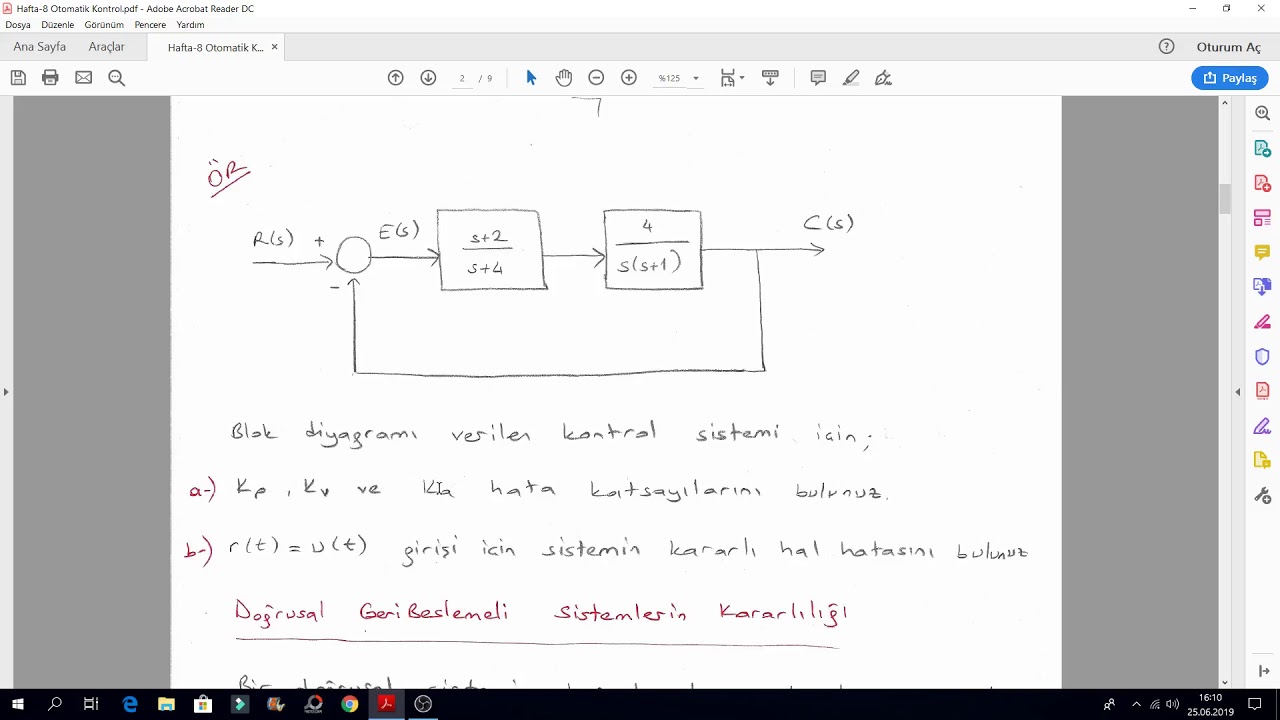 Hafta-8 Otomatik Kontrol.pdf - Adobe Acrobat Reader DC
Dosya Düzenle Görünüm Pencere Yardım
Ana Sayfa Araçlar Hafta-8 Otomatik K... × Oturum Aç
2 / 9 %125 Paylaş
ÖR
R(s) + E(s) s+2 4 C(s)
s+4 s(s+1)
-
Blok diyagramı verilen kontrol sistemi için;
a-) Kp, Kv ve Ka hata katsayılarını bulunuz.
b-) r(t) = u(t) girişi için sistemin kararlı hal hatasını bulunuz
Doğrusal GeriBeslemeli Sistemlerin Kararlılığı
Bir doğrusal
16:10
25.06.2019